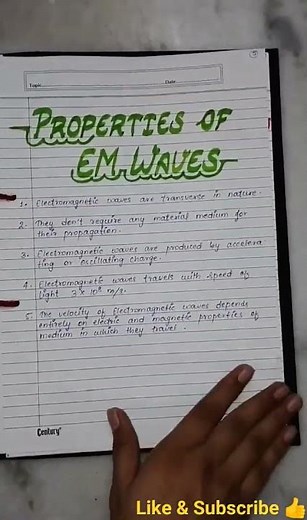 Topic
Date
PROPERTIES OF
EM WAVES
1. Electromagnetic waves are transverse in nature.
2. They don't require any material medium for
their propagation.
3. Electromagnetic waves are produced by accelera
ting or oscillating charge.
4. Electromagnetic waves travels with speed of
light 3×10⁸ m/s.
5. The velocity of electromagnetic waves depends
entirely on electric and magnetic properties of
medium in which they travel.
Century
Like & Subscribe 👍